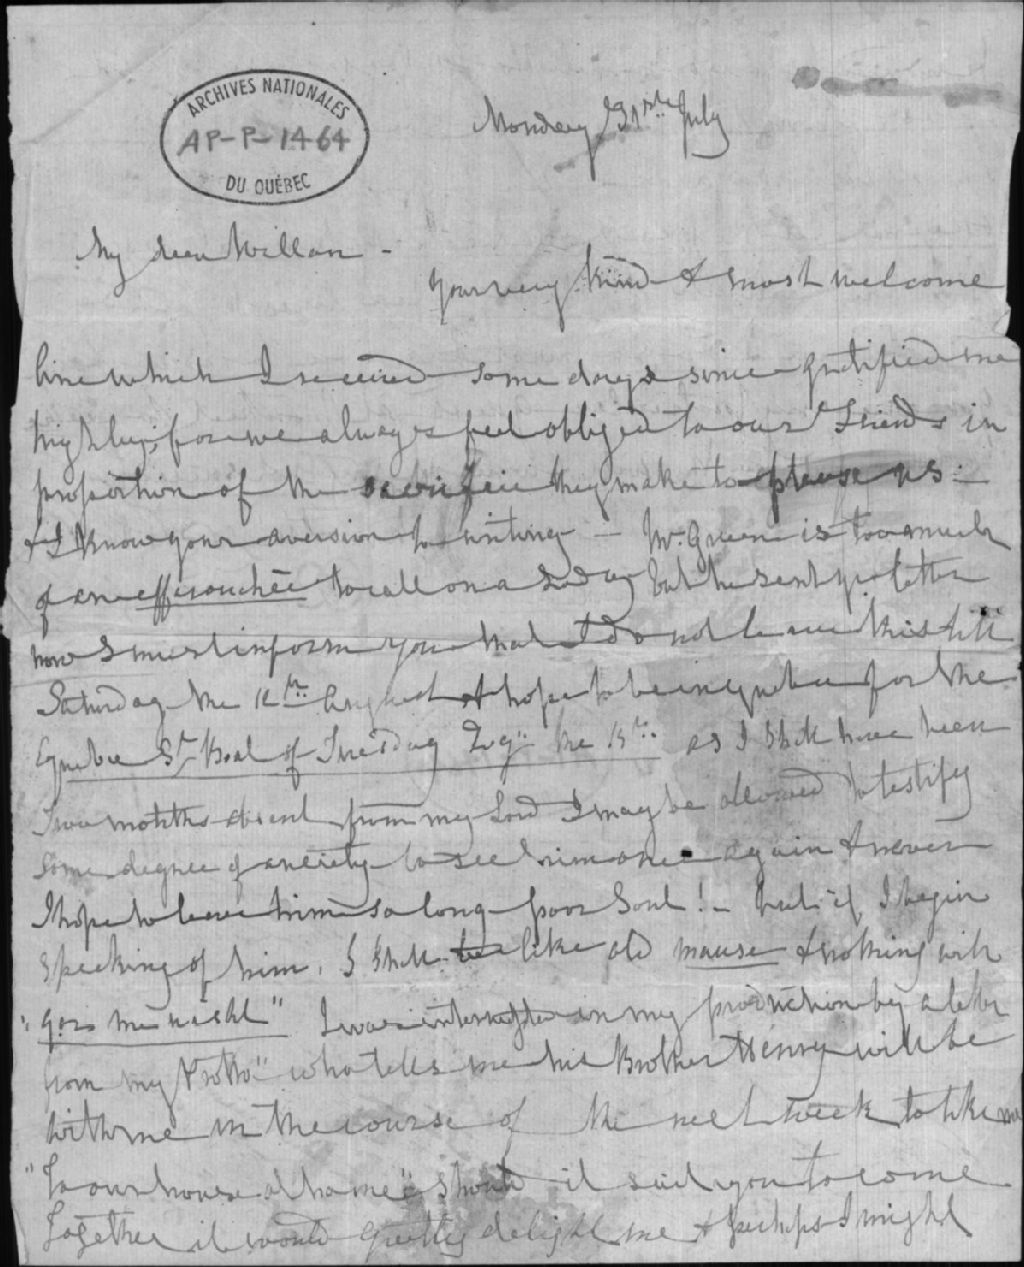 ARCHIVES NATIONALES
AP-P-1464
DU QUÉBEC
Monday 31st July
My dear Willan -
Your very kind & most welcome
line which I received some days since gratified me
highly, for we always feel obliged to our friends in
proportion of the sacrifice they make to please us -
& I know your aversion to writing - Mr. Green is too much
of an efferouchée to call on a Lady but he sent yr letter
now I must inform you that I do not leave this till
Saturday the 12th August & hope to be in Quebec for the
Quebec St. Boat of Tuesday the 15th. as I shall have been
Two months absent from my Lord I may be allowed to testify
some degree of anxiety to see him once again & never
I hope to leave him so long poor Soul! - but if I begin
speaking of him, I shall be like old mause & nothing will
"
I was interrupted in my production by a letter
from my who tells me his Brother Henry will be
with me in the course of the next week to take me
"To our house at home" should it suit you to come
Together it would greatly delight me & perhaps I might